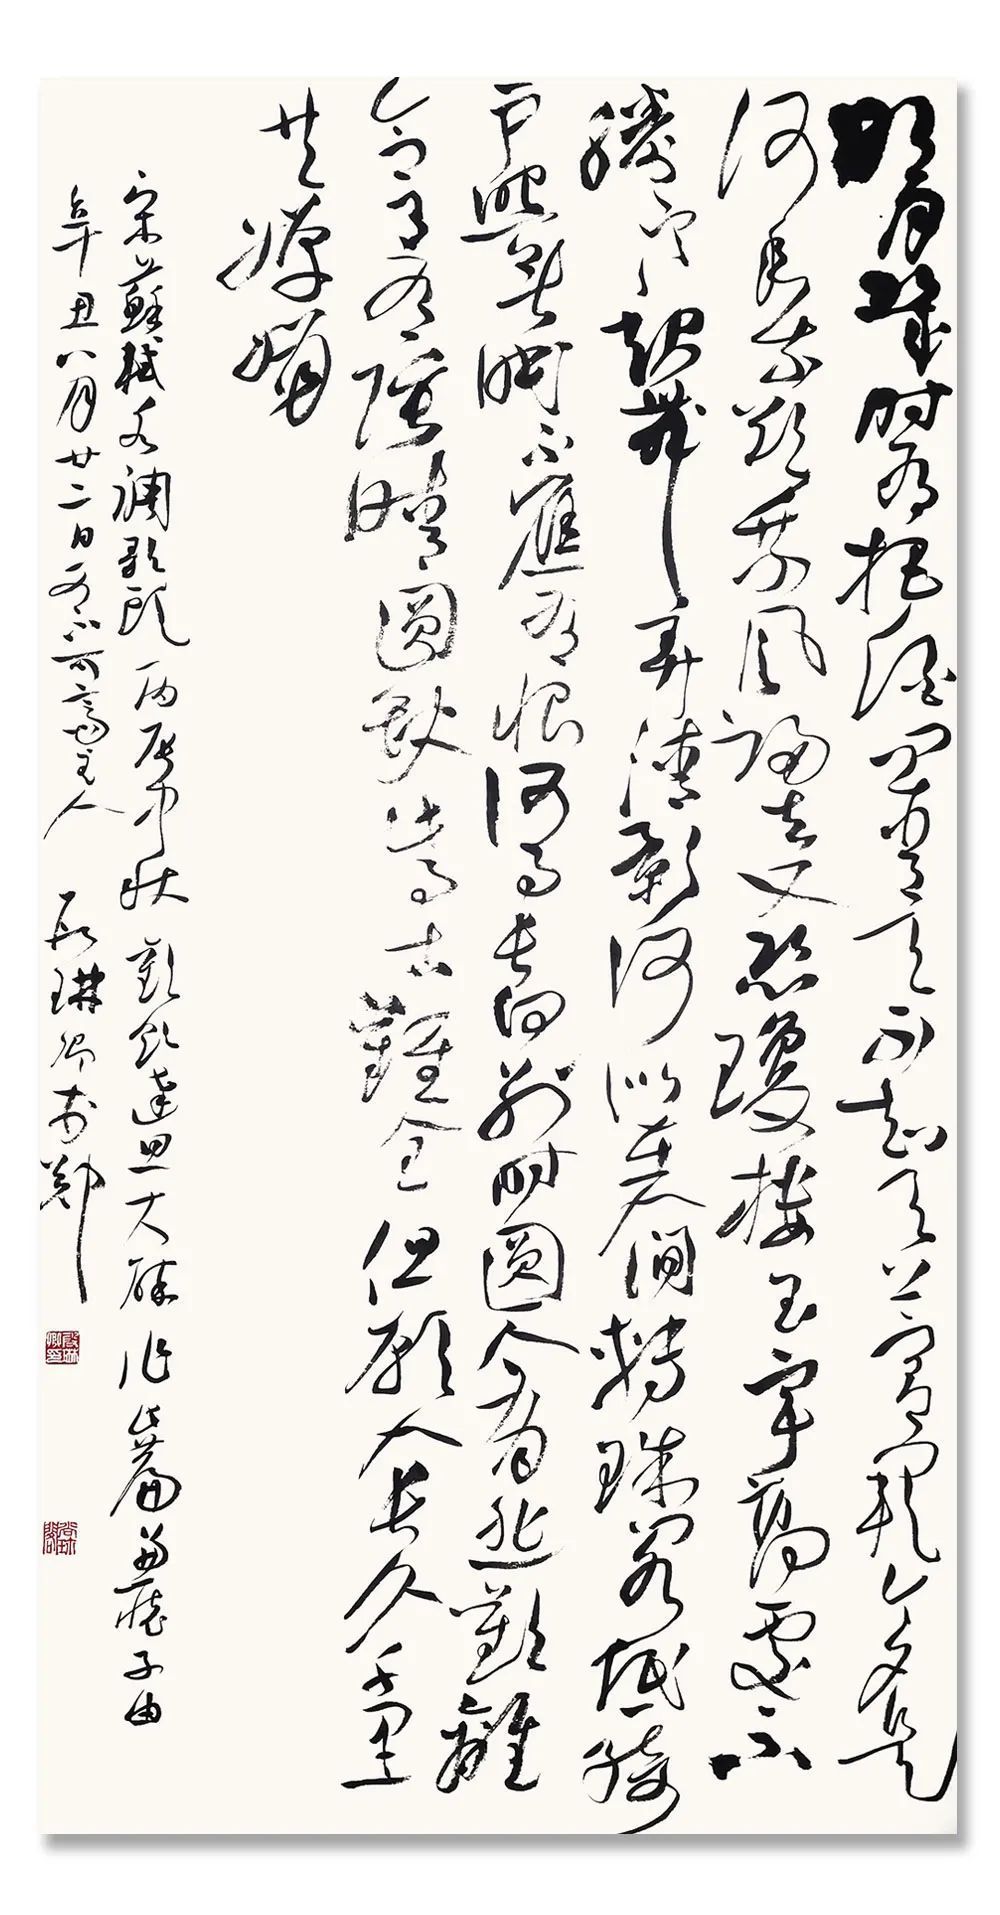 明月幾時有把酒問青天不知天上宮闕今夕是
何年我欲乘風歸去又恐瓊樓玉宇高處不
勝寒起舞弄清影何似在人間轉珠閣低綺
戶照無眠不應有恨何事長向別時圓人有悲歡離
合月有陰晴圓缺此事古難全但願人長久千里
共嬋娟
宋蘇軾水調歌頭丙辰中秋歡飲達旦大醉作此篇兼懷子由
辛丑八月廿二日可不可齋主人殷琳卿於鄭